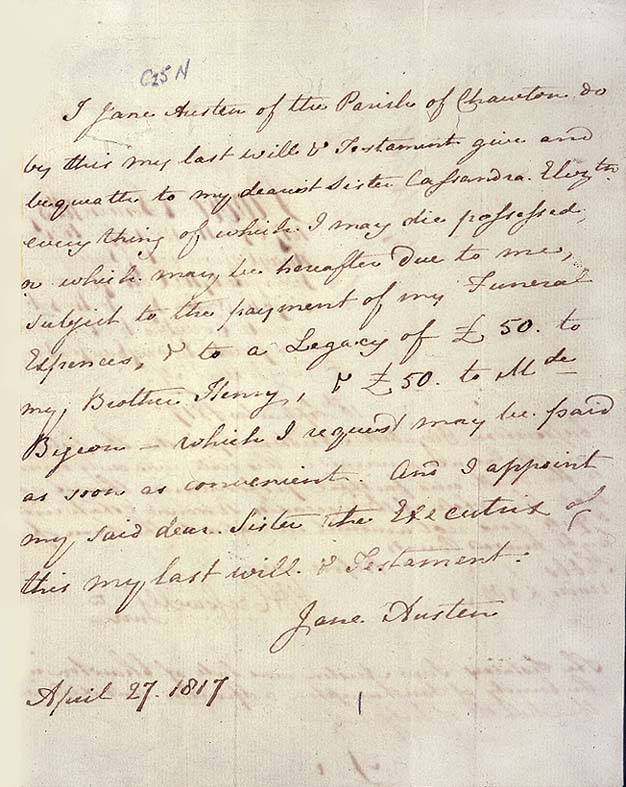 C25 N
I Jane Austen of the Parish of Chawton do
by this my last will & Testament give and
bequeath to my dearest Sister Cassandra Elizth
every thing of which I may die possessed,
or which may be hereafter due to me,
subject to the payment of my Funeral
Expences, & to a Legacy of £50. to
my Brother Henry, & £50. to Mde
Bigeon – which I request may be paid
as soon as convenient. And I appoint
my said dear Sister the Executrix of
this my last will & Testament.
Jane Austen
April 27. 1817